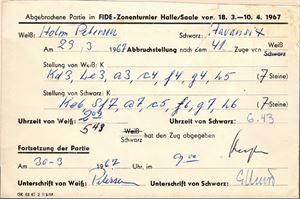 Abgebrochene Partie im FIDE-Zonenturnier Halle/Saale vor. 18. 3.—10. 4. 1967
Weiß: Holm Petersen Schwarz:
Am 29/3 1967 Abbruchstellung nach dem 41 Zuge von Weiß Schwarz
Stellung von Weiß: K
Kd3, Le3, a3, c4, f4, g4, h5 (7 Steine)
Stellung von Schwarz: K
Ke6, Sf7, a7, c5, f6, g7, h6 (7 Steine)
Uhrzeit von Weiß: Uhrzeit von Schwarz: 6.43
5 49 Weiß Schwarz hat den Zug abgegeben
Fortsetzung der Partie
Am 30-3 1967 Uhr, im 9 00
Unterschrift von Weiß: Petersen Unterschrift von Schwarz: